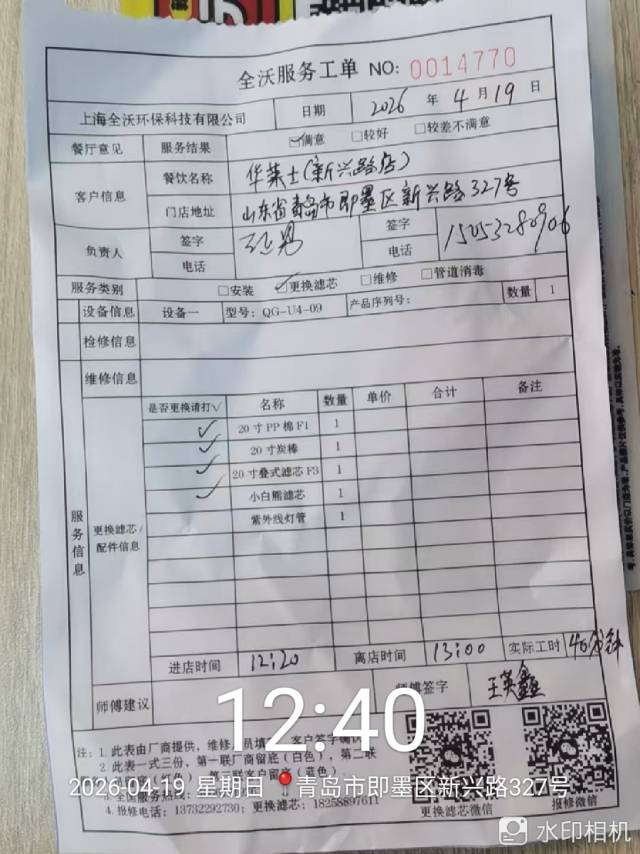 全沃服务工单 NO: 0014770
上海全沃环保科技有限公司 日期 2026 年 4 月 19 日
餐厅意见 服务结果 ☑满意 □较好 □较差不满意
客户信息 餐饮名称 华莱士(新兴路店)
门店地址 山东省青岛市即墨区新兴路327号
负责人 签字 签字
电话 电话 15053280906
服务类别 □安装 ☑更换滤芯 □维修 □管道消毒
设备信息 设备一 型号: QG-U4-09 产品序列号: 数量 1
检修信息
维修信息
服务信息
更换滤芯/配件信息
是否更换请打√ 名称 数量 单价 合计 备注
√ 20寸PP棉F1 1
√ 20寸炭棒 1
√ 20寸叠式滤芯F3 1
√ 小白熊滤芯 1
紫外线灯管 1
进店时间 12:20 离店时间 13:00 实际工时 40分钟
师傅建议 师傅签字 王英鑫
12:40
注: 1. 此表由厂商提供, 维修 填 客户签字确认
2. 此表一式三份, 第一联厂商留底(白色), 第二联
2026-04-19 星期日 青岛市即墨区新兴路327号
3. 全国服务热线:
4. 报修电话: 13732292730; 更换滤芯: 18258897611
更换滤芯微信 报修微信
水印相机